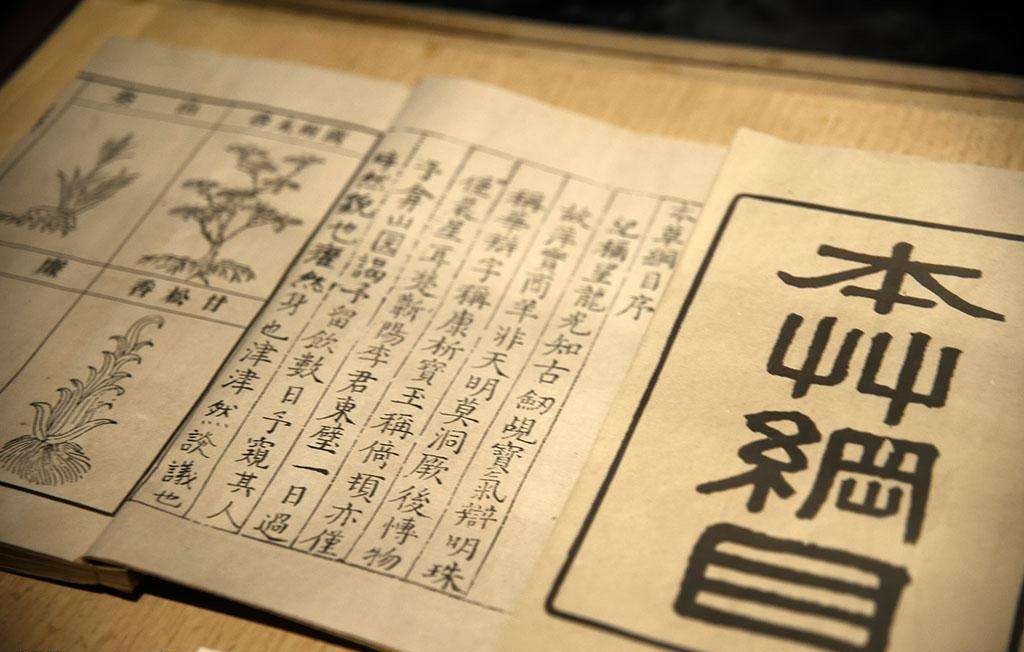 本艸綱目
本草綱目序
稱望龍光知古劒覘寶氣辯明珠
故萍實商羊非天明莫洞厥後愽物
稱華辯字稱康析寶玉稱倚頓亦僅
僅晨星耳楚蘄陽李君東壁一日過
予弇山園謁予留飲數日予窺其人
睟然貌也癯然身也津津然談議也
甘松香